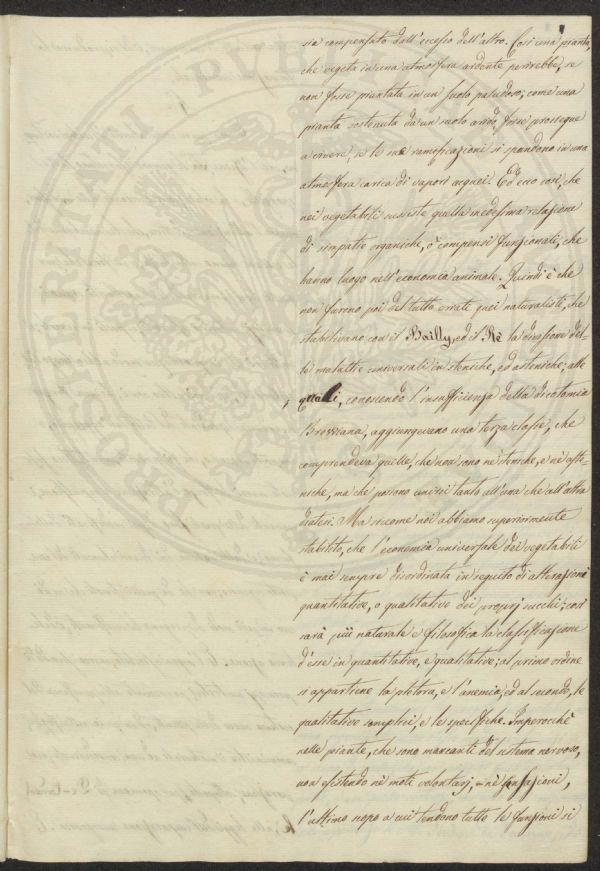 sia compensato dall'eccesso dell'altro. Così una pianta,
che vegeta in una atmosfera ardente perirebbe, se
non fosse piantata in un suolo paludoso; come una
pianta sostenuta da un suolo arido, forse prosegue
a vivere, se le sue ramificazioni si spandono in una
atmosfera carica di vapori acquei. Ed ecco così, che
nei vegetabili sussiste quella medesima relazione
di simpatie organiche, o compensi funzionali, che
hanno luogo nell'economia animale. Quindi è che
non furono poi del tutto errate quei naturalisti, che
stabilivano con il Bailly, ed il Rè la divisione del-
le malattie universali in steniche, ed asteniche; alle
quali, conoscendo l'insufficienza della dicotomia
Browniana, aggiungevano una terza classe, che
comprendeva quelle, che non sono nè steniche, e nè aste-
niche, ma che possono unirsi tanto all'una che all'altra
diatesi. Ma siccome noi abbiamo superiormente
stabilito, che l'economia universale dei vegetabili
è mai sempre disordinata in seguito di alterazioni
quantitative, o qualitative dei proprj succhi; così
sarà più naturale e filosofica la classificazione
d'esse in quantitative, e qualitative; al primo ordine
si appartiene la pletora, e l'anemia; ed al secondo, le
qualitative semplici, e le specifiche. Imperocchè
nelle piante, che sono mancanti del sistema nervoso,
non esistendo nè moti volontarj, nè sensazioni,
l'ultimo scopo a cui tendono tutte le funzioni si
PROSPERITATI PVBL